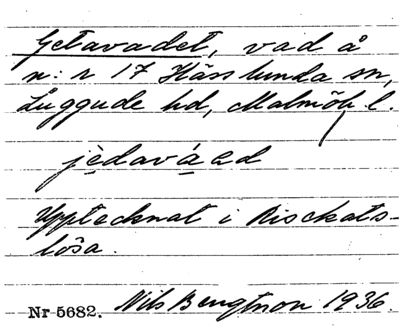 Getavadet, vad å
n:r 17 Hässlunda sn,
Luggude hd, Malmöh. l.
jèdaváad
Upptecknat i Risekats-
lösa.
Nr 5682. Nils Bengtson 1936.